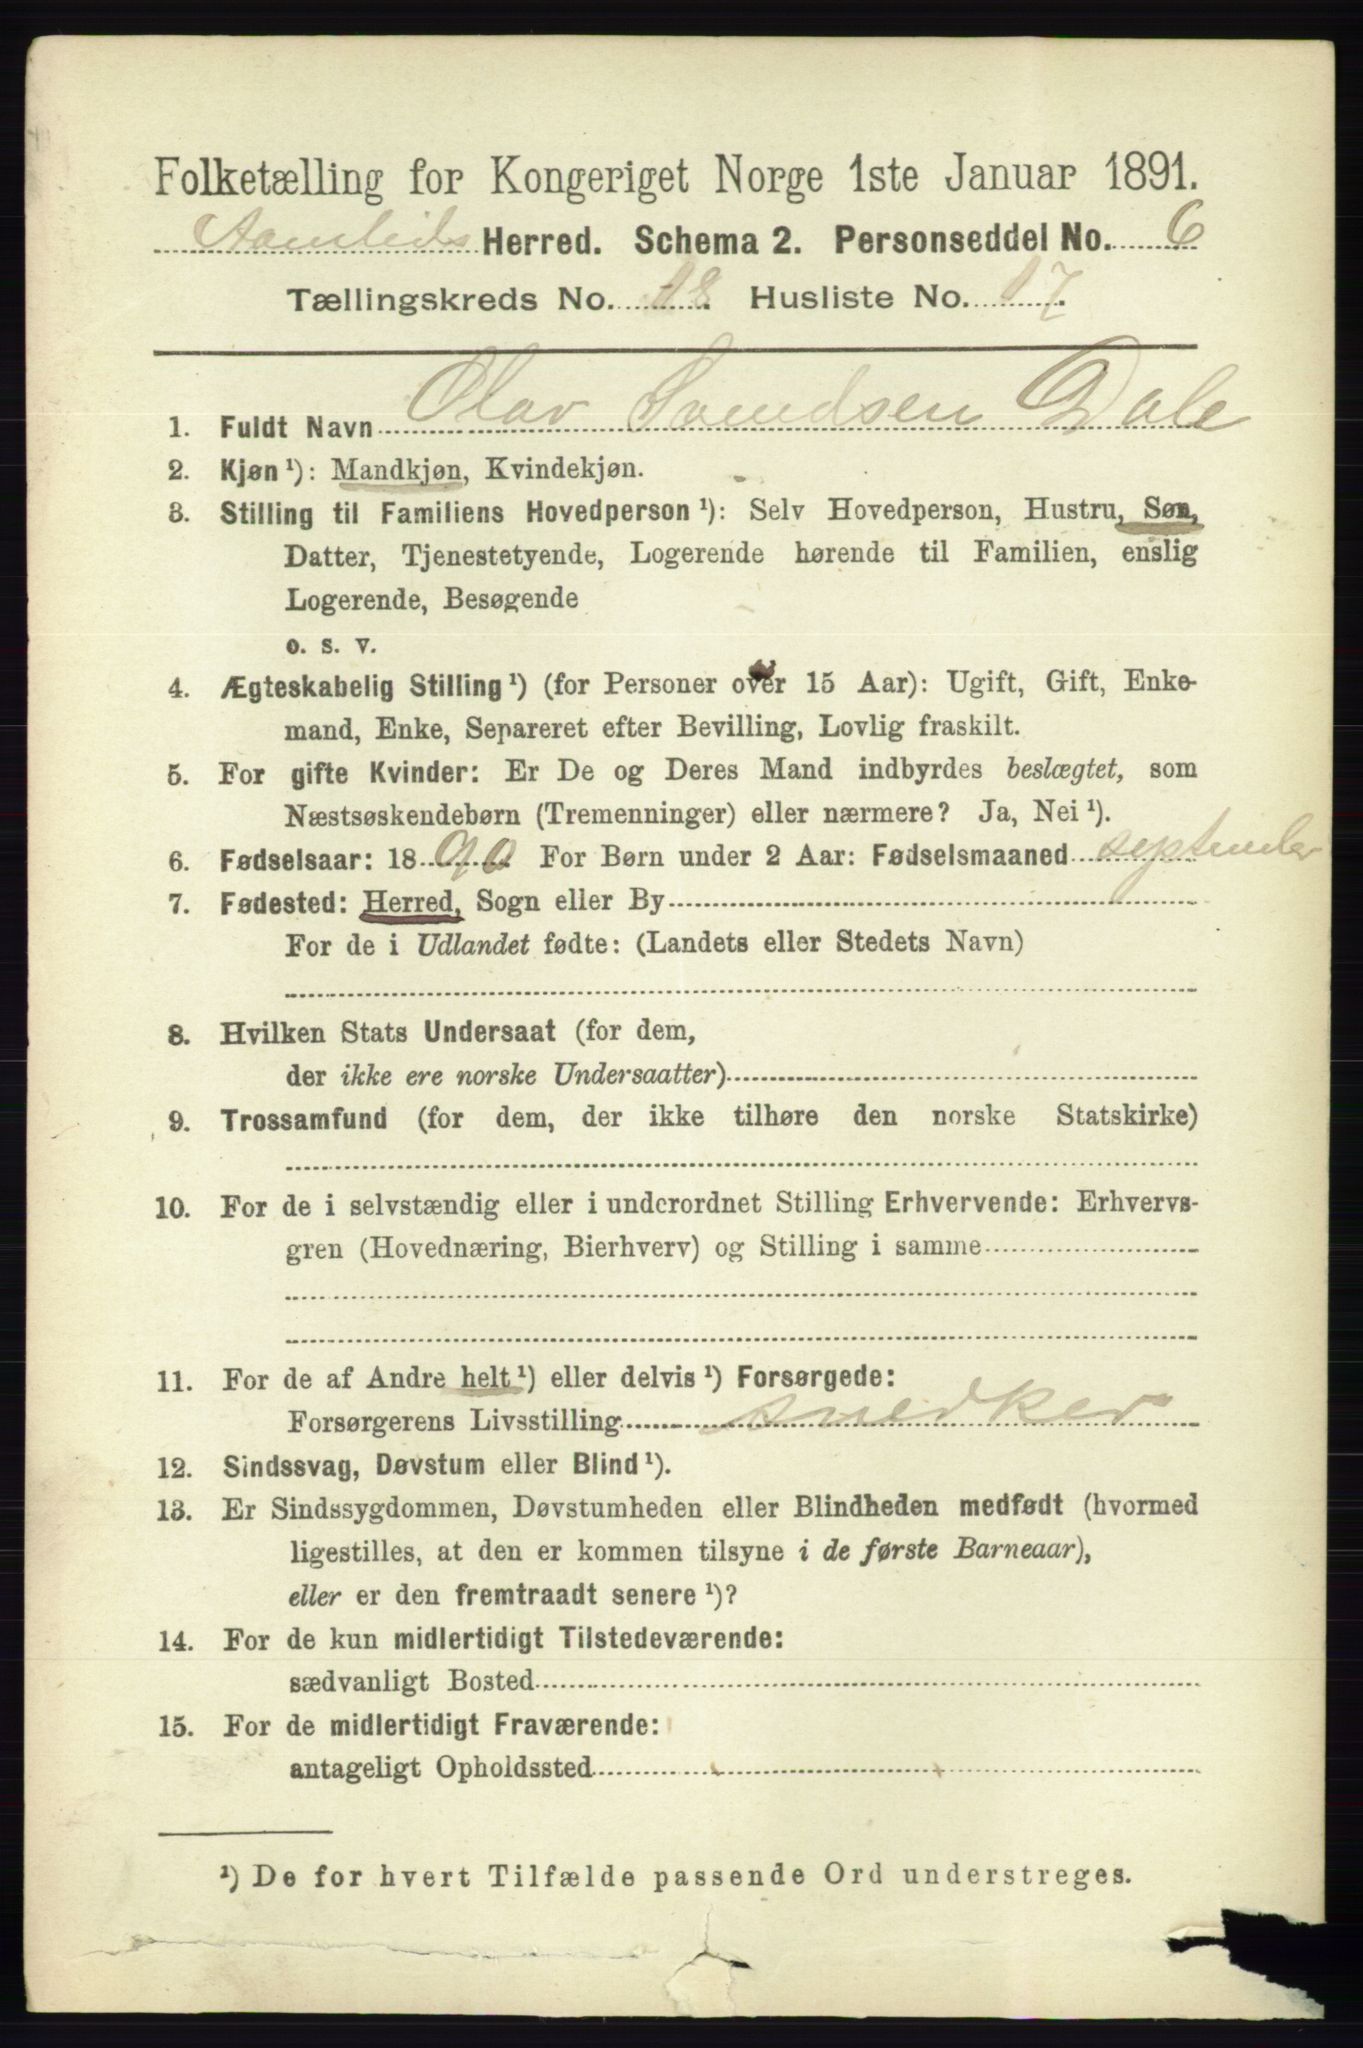 Folketælling for Kongeriget Norge 1ste Januar 1891.
Aamlids Herred. Schema 2. Personseddel No. 6
Tællingskreds No. 18. Husliste No. 17.
1. Fuldt Navn Olav Svendsen Dale
2. Kjøn ¹): Mandkjøn, Kvindekjøn.
3. Stilling til Familiens Hovedperson ¹): Selv Hovedperson, Hustru, Søn,
Datter, Tjenestetyende, Logerende hørende til Familien, enslig
Logerende, Besøgende
o. s. v.
4. Ægteskabelig Stilling ¹) (for Personer over 15 Aar): Ugift, Gift, Enke-
mand, Enke, Separeret efter Bevilling, Lovlig fraskilt.
5. For gifte Kvinder: Er De og Deres Mand indbyrdes beslægtet, som
Næstsøskendebørn (Tremenninger) eller nærmere? Ja, Nei ¹).
6. Fødselsaar: 1890. For Børn under 2 Aar: Fødselsmaaned september
7. Fødested: Herred, Sogn eller By
For de i Udlandet fødte: (Landets eller Stedets Navn)
8. Hvilken Stats Undersaat (for dem,
der ikke ere norske Undersaatter)
9. Trossamfund (for dem, der ikke tilhøre den norske Statskirke)
10. For de i selvstændig eller i underordnet Stilling Erhvervende: Erhvervs-
gren (Hovednæring, Bierhverv) og Stilling i samme
11. For de af Andre helt ¹) eller delvis ¹) Forsørgede:
Forsørgerens Livsstilling snedker
12. Sindssvag, Døvstum eller Blind ¹).
13. Er Sindssygdommen, Døvstumheden eller Blindheden medfødt (hvormed
ligestilles, at den er kommen tilsyne i de første Barneaar),
eller er den fremtraadt senere ¹)?
14. For de kun midlertidigt Tilstedeværende:
sædvanligt Bosted
15. For de midlertidigt Fraværende:
antageligt Opholdssted
¹) De for hvert Tilfælde passende Ord understreges.